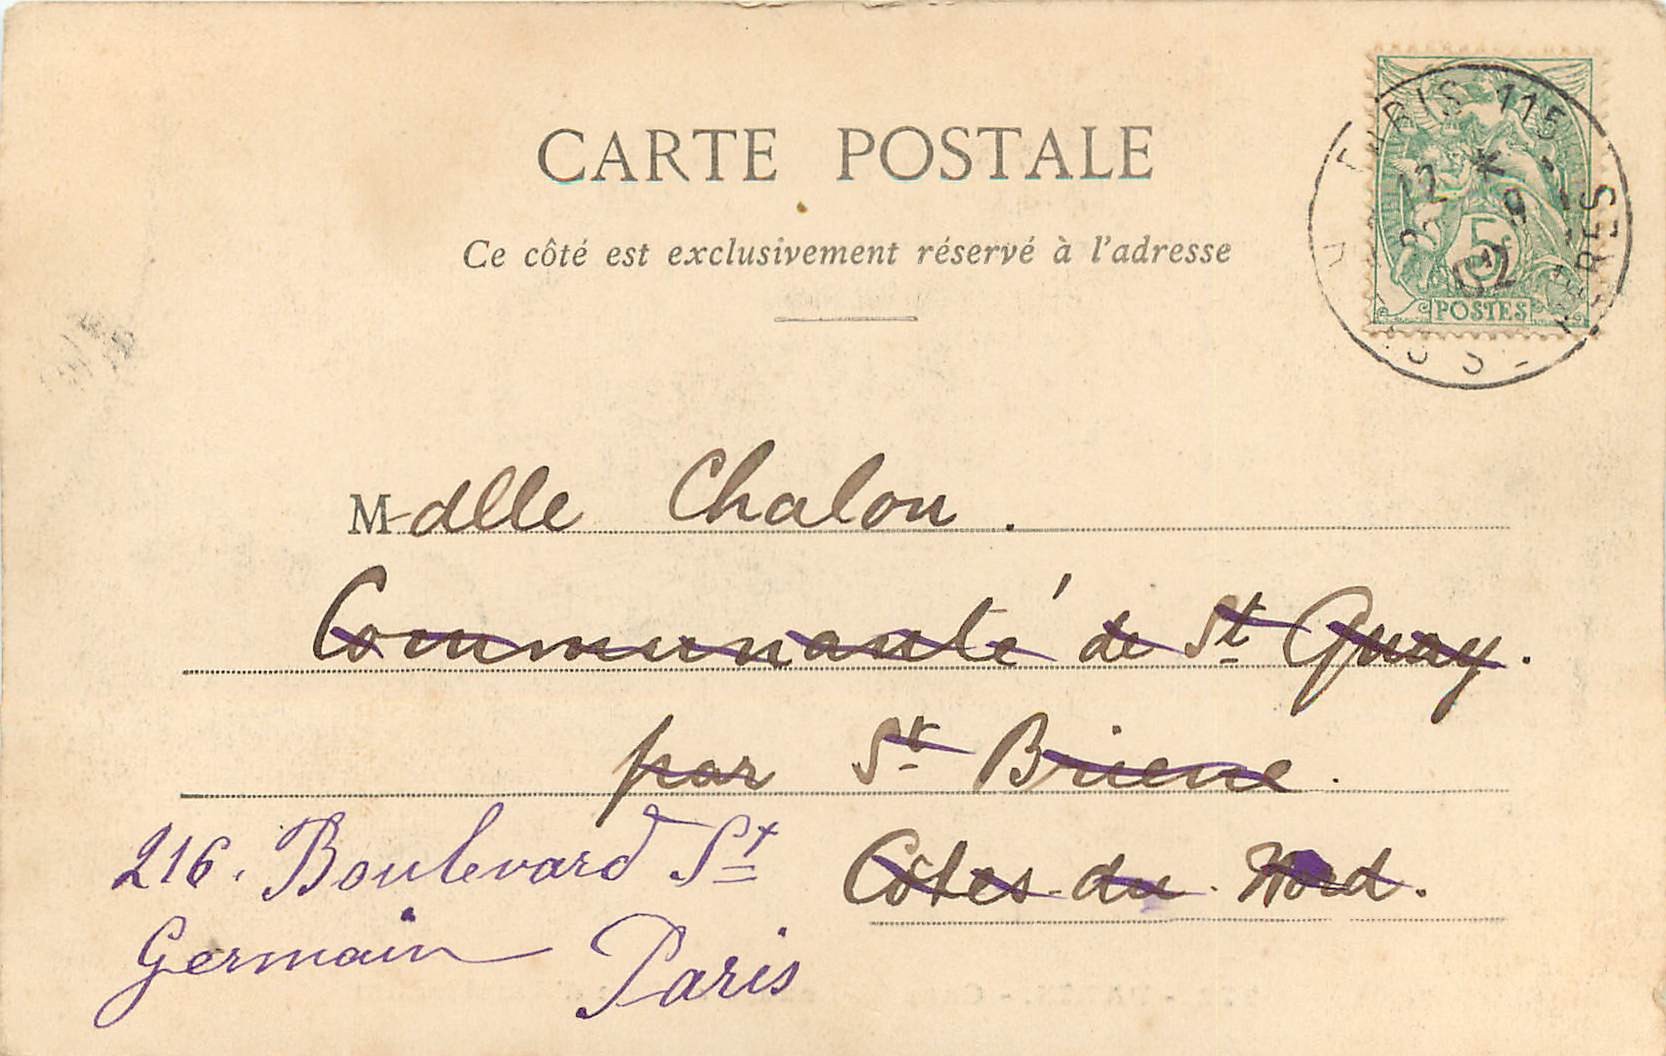 CARTE POSTALE
Ce côté est exclusivement réservé à l'adresse
PARIS 115
12 *
9
02
5c
POSTES
Mdlle Chalon.
Communauté de St Quay.
par St Briene.
Côtes du Nord.
216. Boulevard St
Germain Paris